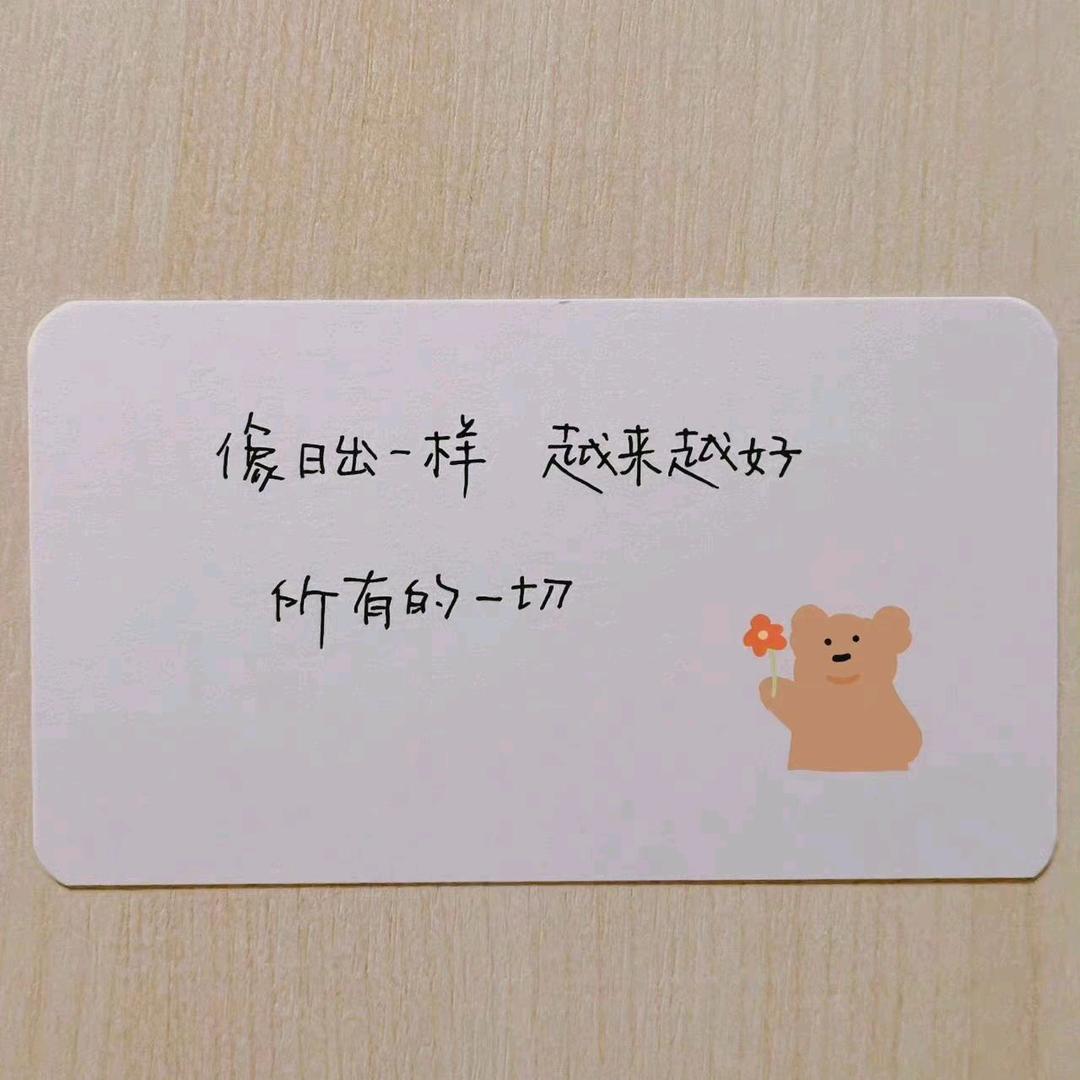 像日出一样 越来越好
所有的一切